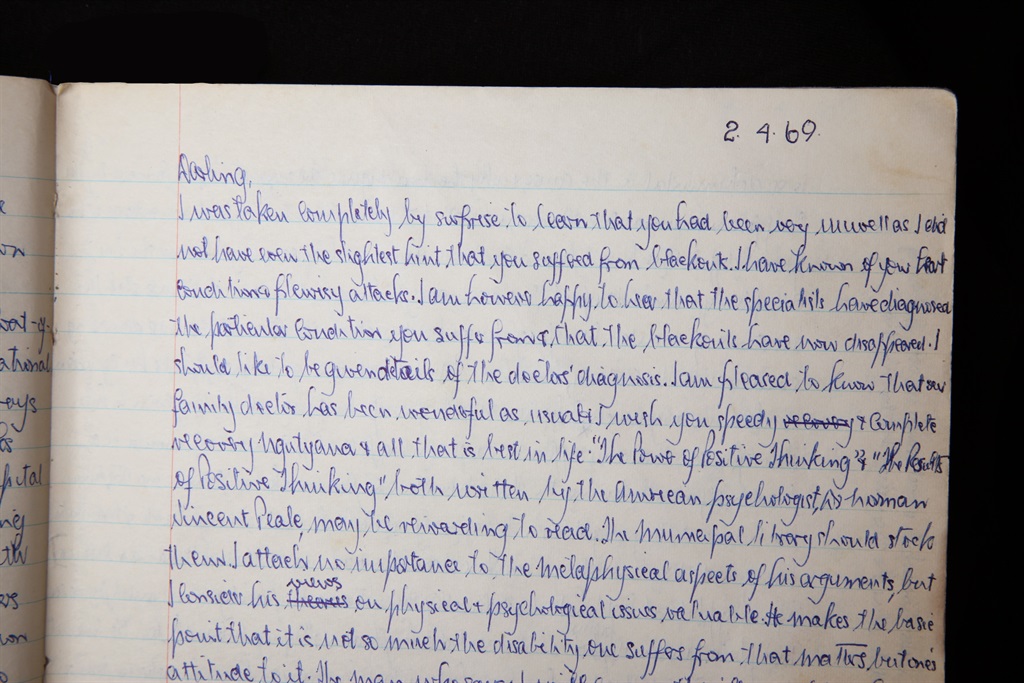 2. 4. 69.
Darling,
I was taken completely by surprise to learn that you had been very unwell as I did
not have even the slightest hint that you suffered from blackouts. I have known of your heart
condition & pleurisy attacks. I am however happy to hear that the specialists have diagnosed
the particular condition you suffer from & that the blackouts have now disappeared. I
should like to be given details of the doctors' diagnosis. I am pleased to know that our
family doctor has been wonderful as usual & I wish you speedy recovery & complete
recovery Ngutyana & all that is best in life. "The Power of Positive Thinking" & "The Results
of Positive Thinking", both written by the American psychologist, Dr Norman
Vincent Peale, may be rewarding to read. The municipal library should stock
them. I attach no importance to the metaphysical aspects of his arguments, but
I consider his theories views on physical & psychological issues valuable. He makes the basic
point that it is not so much the disability one suffers from that matters, but one's
attitude to it. The man who says: I will
at-of-
ational
ays
pital